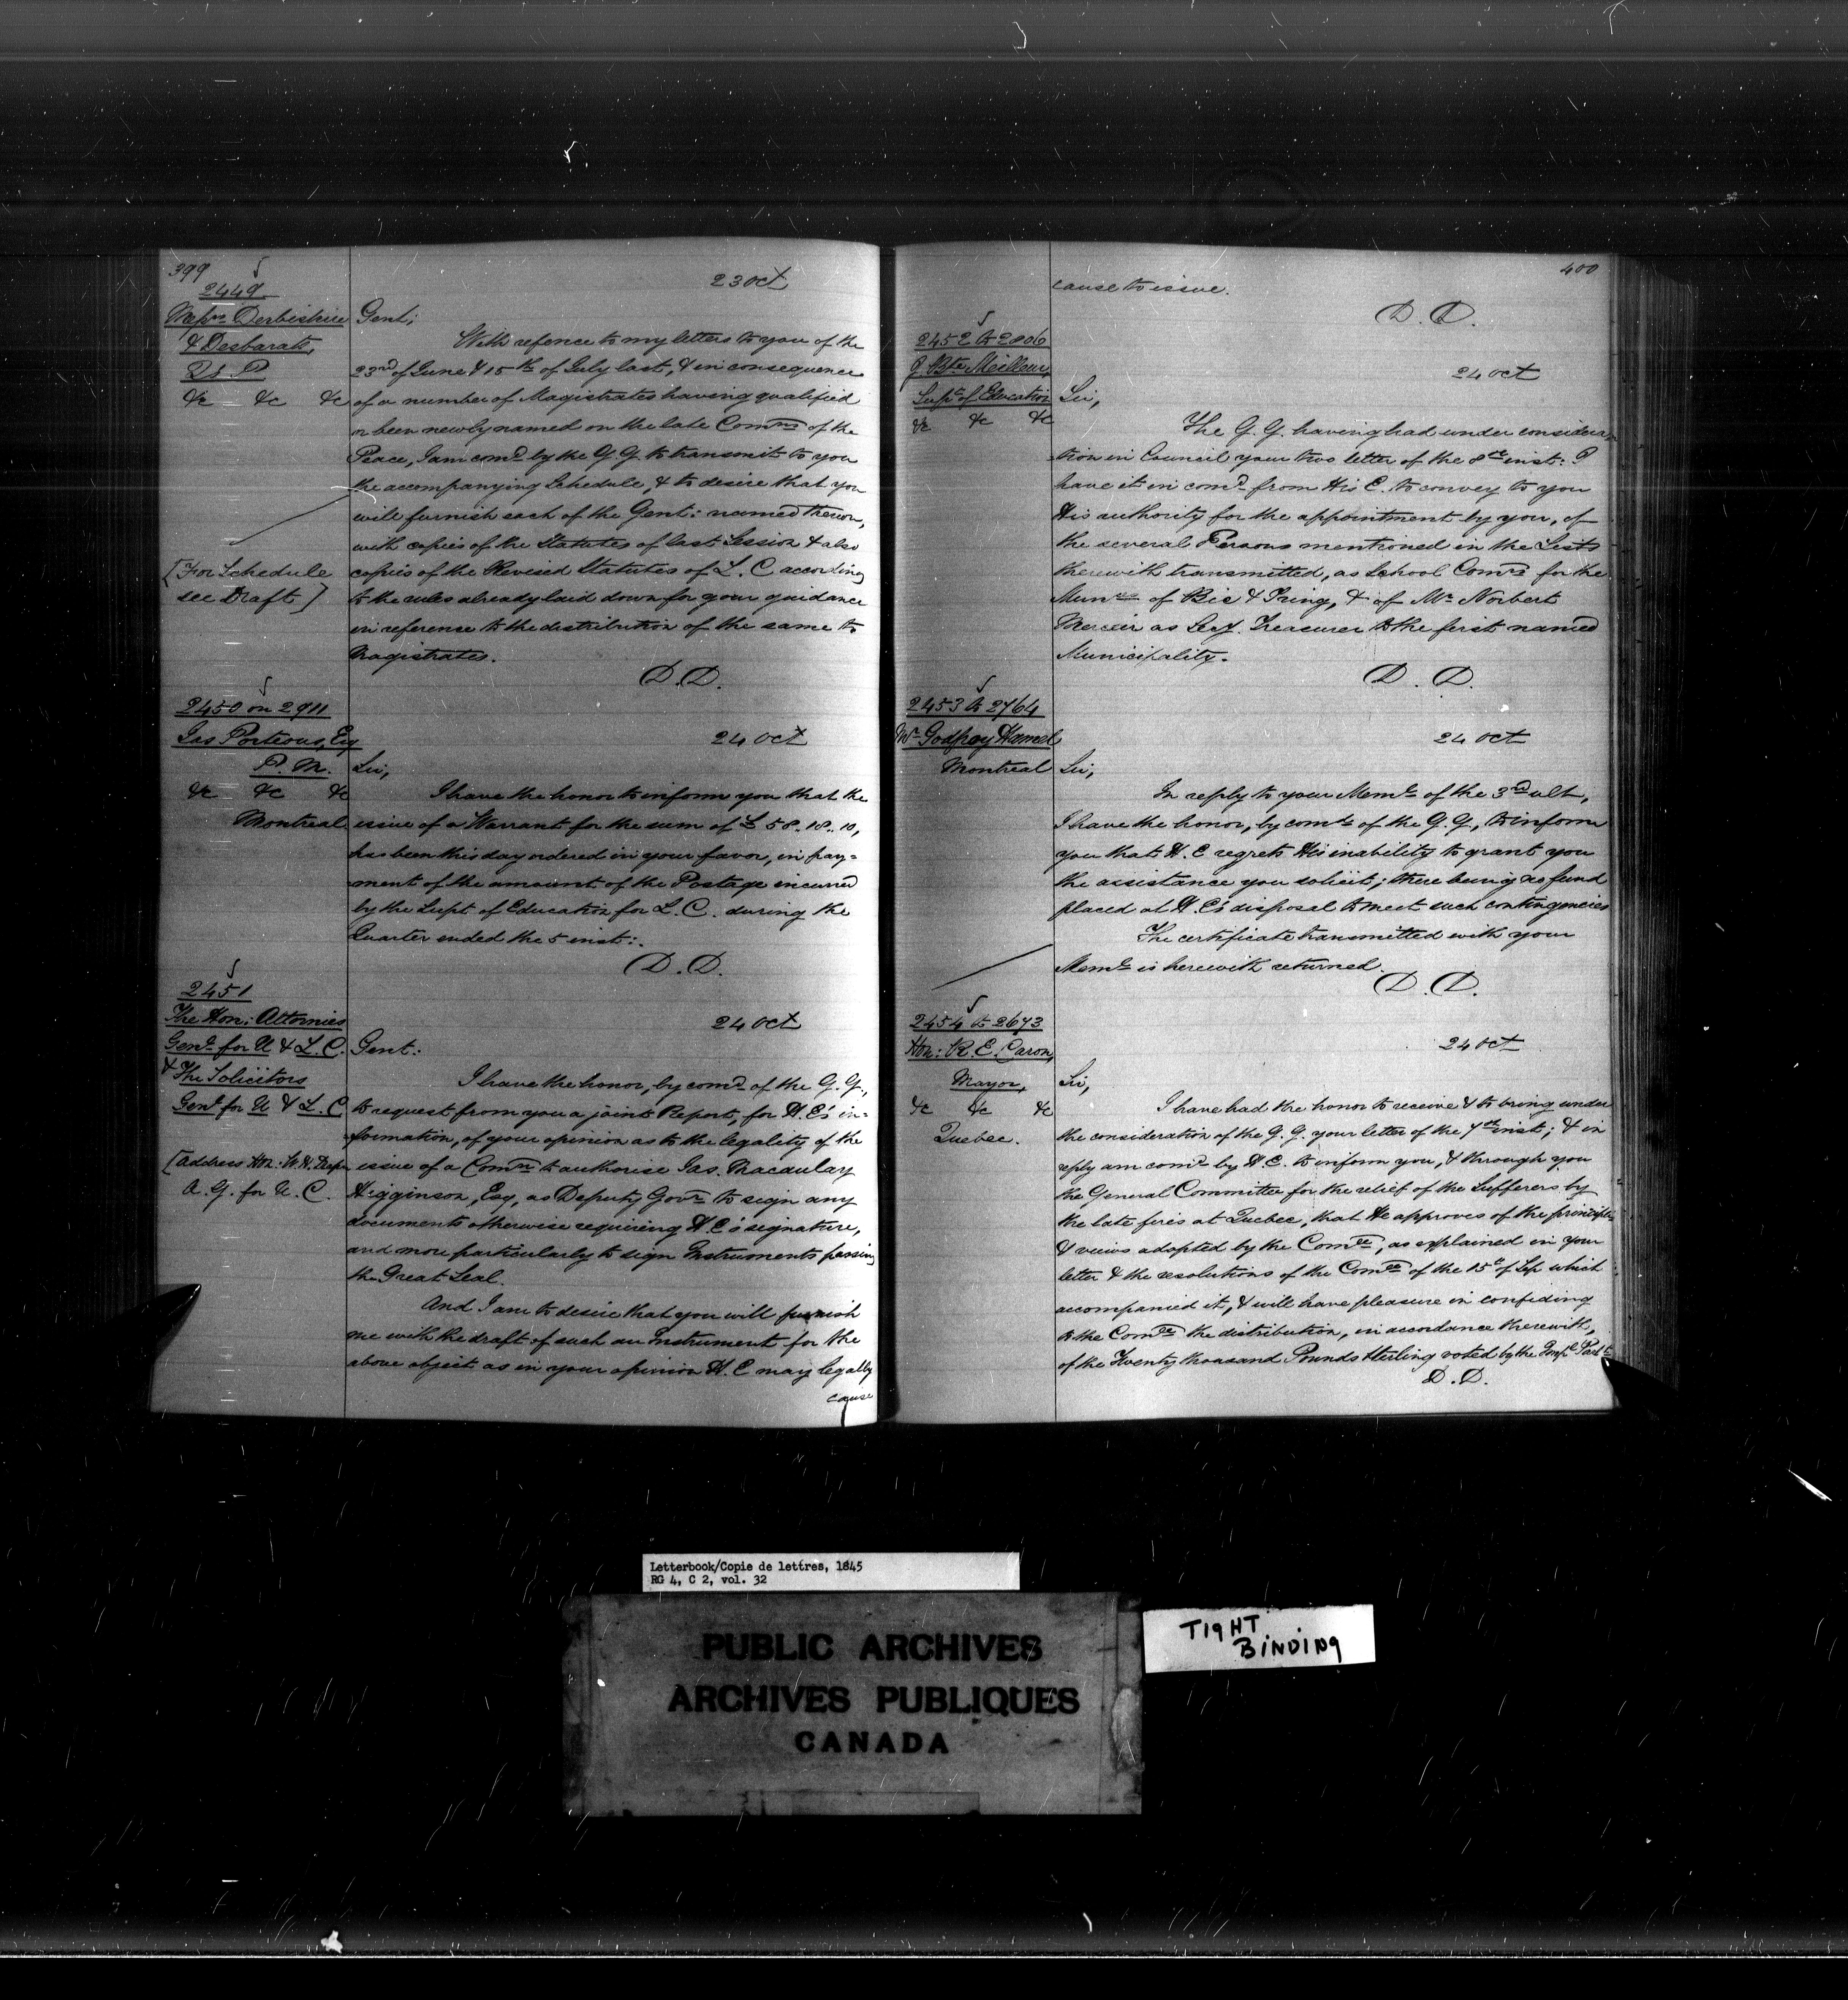 399
2449
Messrs Derbishire
& Desbarats,
Q. P.
&c &c &c
23 Oct
Gent;
With refence to my letters to you of the
23rd of June & 15th of July last, & in consequence
of a number of Magistrates having qualified
or been newly named on the late Comns of the
Peace, I am comd by the G. G. to transmit to you
the accompanying Schedule, & to desire that you
will furnish each of the Gent: named thereon,
with copies of the Statutes of last Session & also
[For Schedule
see Draft]
copies of the Revised Statutes of L. C according
to the rules already laid down for your guidance
in reference to the distribution of the same to
Magistrates.
D. D.
2450 on 2911
Jas Porteous, Esq
P. M.
&c &c &c
Montreal
24 Oct
Sir,
I have the honor to inform you that the
issue of a Warrant for the sum of £58..18..10,
has been this day ordered in your favor, in pay=
ment of the amount of the Postage incurred
by the Supt of Education for L. C. during the
Quarter ended the 5 inst:.
D. D.
2451
The Hon: Attornies
Genl for U & L. C.
& The Solicitors
Genl for U & L. C
[Address Hon: W. H. Draper
A. G. for U. C.
24 Oct
Gent:
I have the honor, by comd of the G. G.,
to request from you a joint Report, for H. E's in=
formation, of your opinion as to the legality of the
issue of a Comn to authorise Jas. Macaulay
Higginson, Esq, as Deputy Govr to sign any
documents otherwise requiring H E's signature,
and more particularly to sign Instruments passing
the Great Seal.
And I am to desire that you will furnish
me with the draft of such an Instrument for the
above object as in your opinion H. E may legally
cause
400
cause to issue.
D. D.
2452 to 2806
J. Bte Meilleur,
Supt of Education
&c &c &c
24 Oct
Sir,
The G. G. having had under considera=
=tion in Council your two letter of the 8th inst: I
have it in comd from His E. to convey to you
His authority for the appointment by you, of
the several Persons mentioned in the Lists
therewith transmitted, as School Comrs for the
of Bic & & of Mr Norbert
Mercier as Secy. Treasurer to the first named
Municipality.
D. D.
2453 to 2764
Mr Godfroy Hamel
Montreal
24 Oct
Sir,
In reply to your Meml of the 3rd ult,
I have the honor, by comd of the G. G., to inform
you that H. E regrets His inability to grant you
the assistance you solicit; there being no fund
placed at H. E's disposal to meet such contingencies
The certificate transmitted with your
Meml is herewith returned.
D. D.
2454 to 2673
Hon: R. E. Caron,
Mayor,
&c &c &c
Quebec.
24 Oct
Sir,
I have had the honor to receive & to bring under
the consideration of the G. G. your letter of the 7th inst; & in
reply am comd by H. E. to inform you, & through you
the General Committee for the relief of the Sufferers by
the late fires at Quebec, that He approves of the principles
& views adopted by the Comee, as explained in your
letter & the resolutions of the Comee of the 15th of Sep which
accompanied it, & will have pleasure in confiding
to the Comee the distribution, in accordance therewith,
of the Twenty thousand Pounds Sterling voted by the Impl Parlt
D. D.
Letterbook/Copie de lettres, 1845
RG 4, C 2, vol. 32
PUBLIC ARCHIVES
ARCHIVES PUBLIQUES
CANADA
TIGHT
BINDING